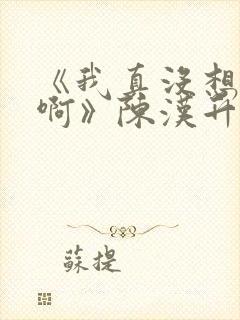 《我真没想
啊》陳漢升
蘇提